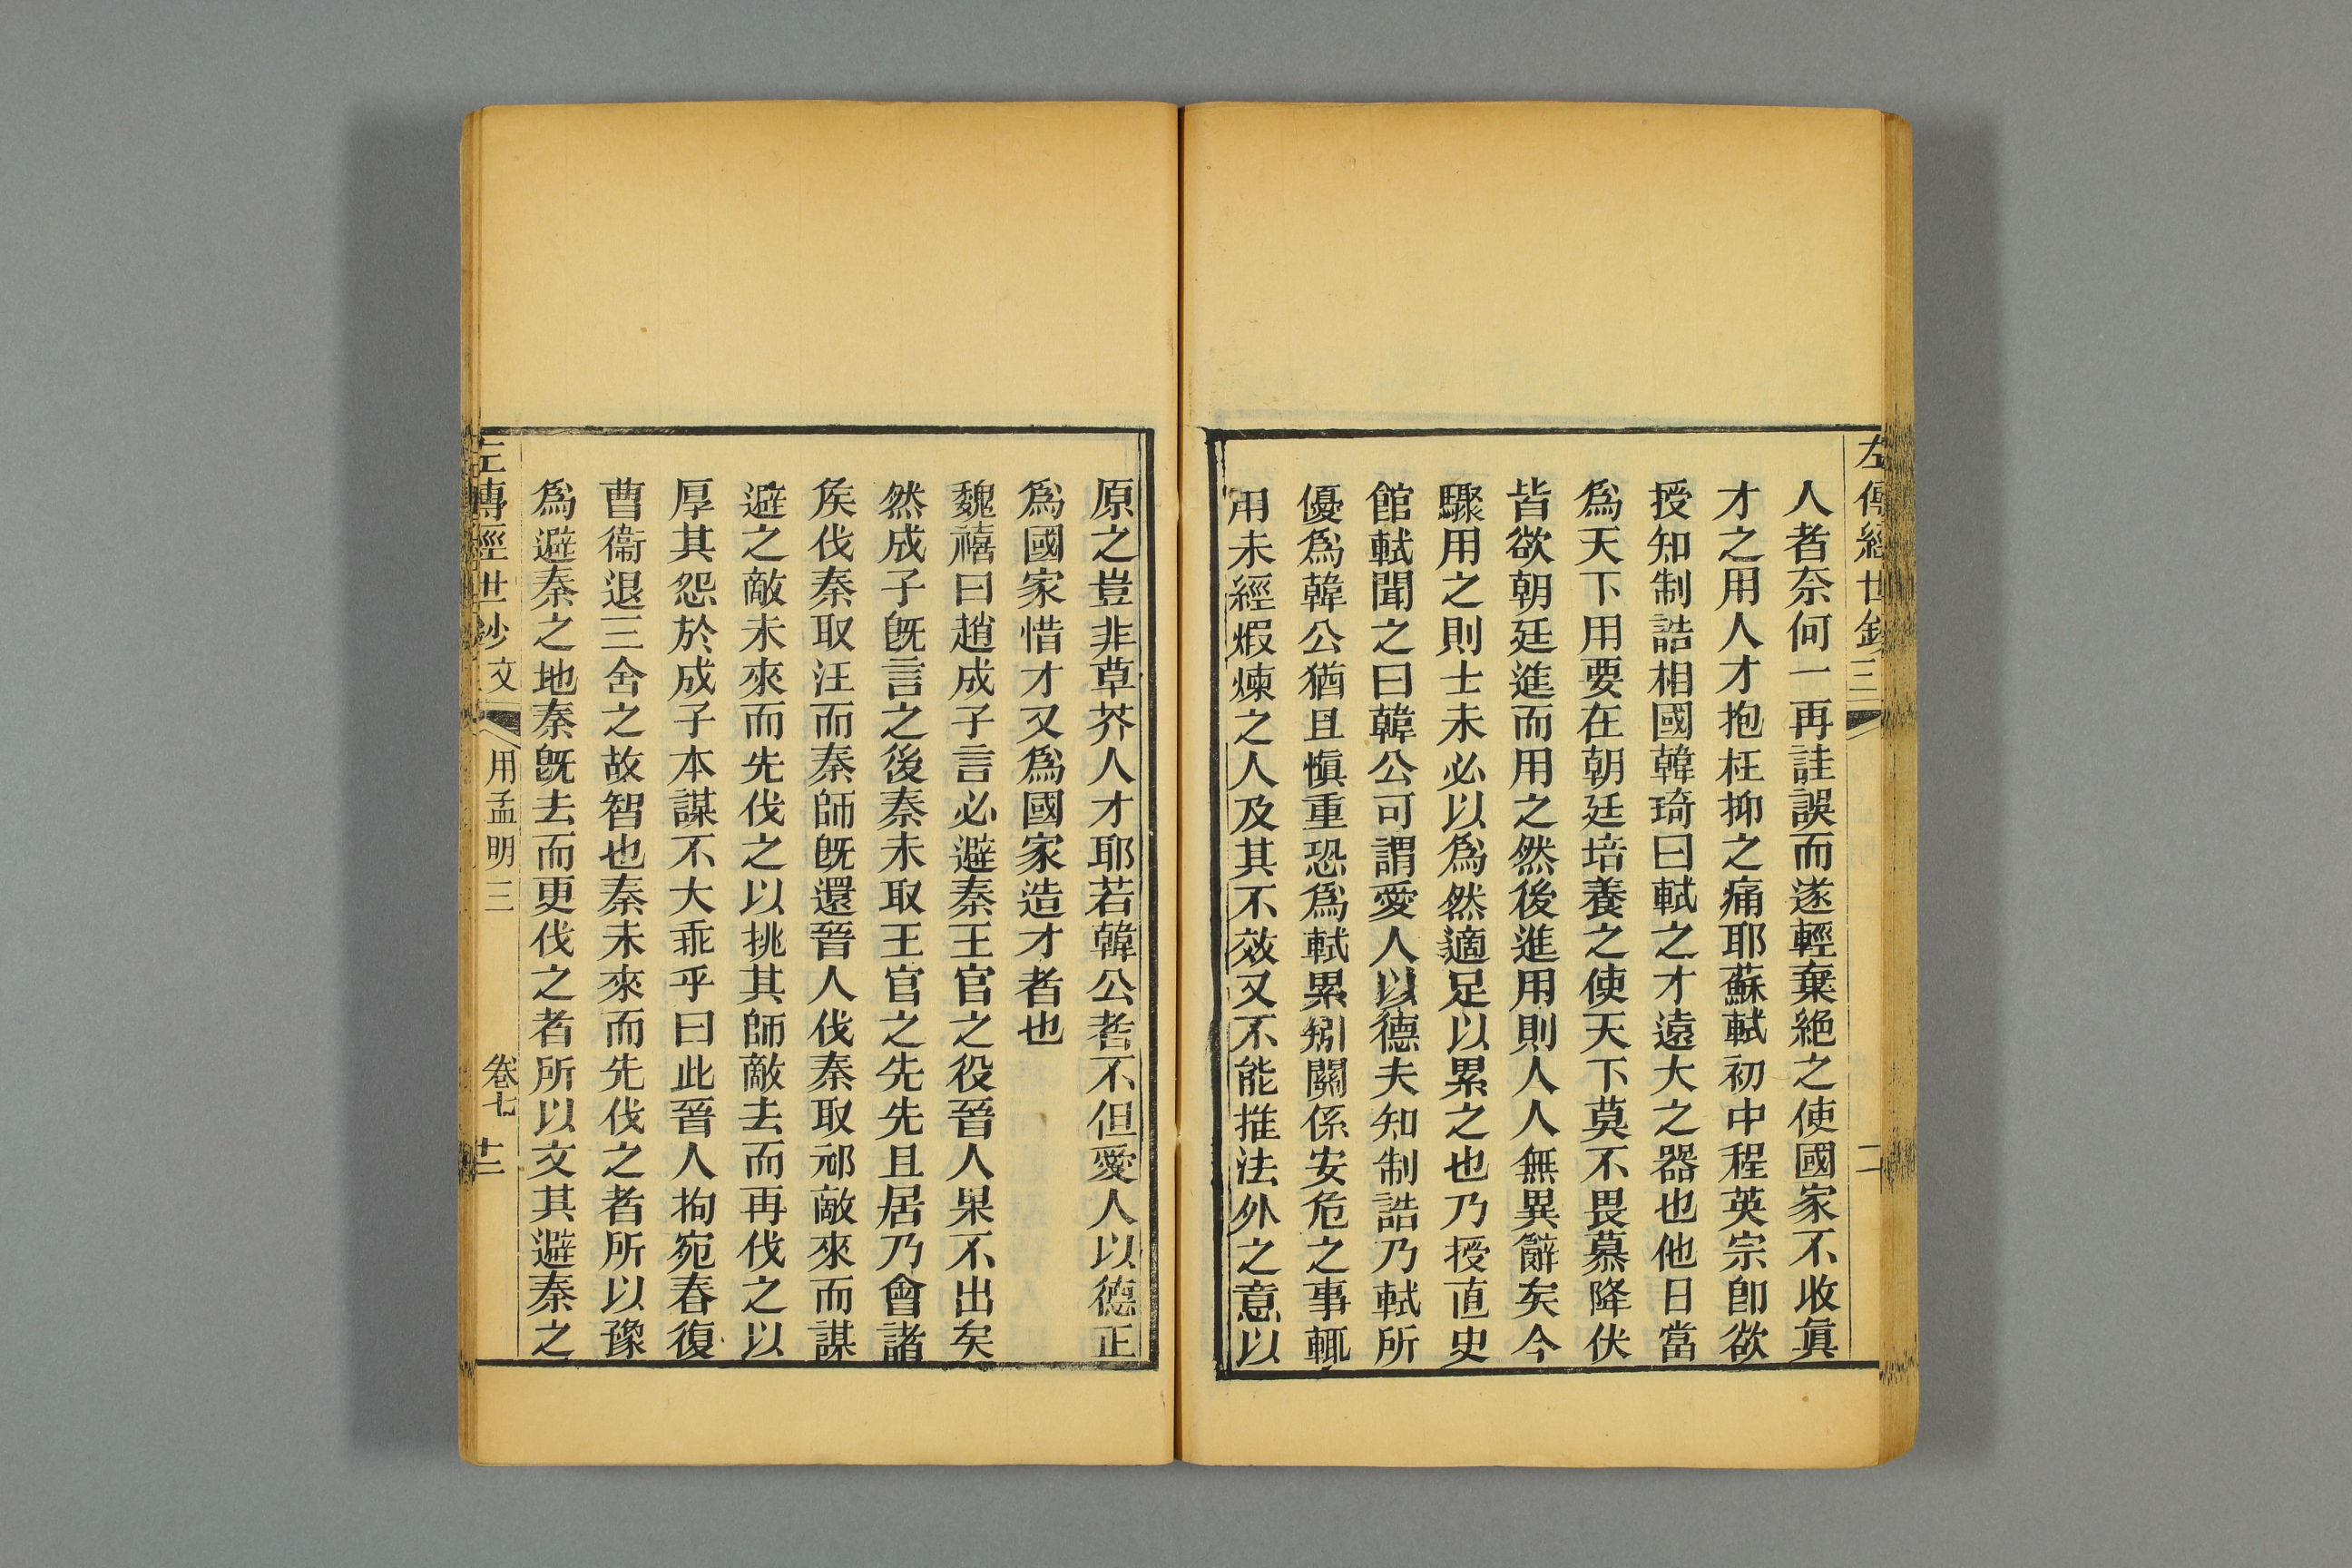 左傳經世鈔
人者奈何一再詿誤而遂輕棄絶之使國家不收眞
才之用人才抱枉抑之痛耶蘇軾初中程英宗卽欲
授知制誥相國韓琦曰軾之才遠大之器也他日當
爲天下用要在朝廷培養之使天下莫不畏慕降伏
皆欲朝廷進而用之然後進用則人人無異辭矣今
驟用之則士未必以爲然適足以累之也乃授直史
館軾聞之曰韓公可謂愛人以德夫知制誥乃軾所
優爲韓公猶且愼重恐爲軾累矧關係安危之事輒
用未經煆煉之人及其不效又不能推法外之意以
原之豈非草芥人才耶若韓公者不但愛人以德正
爲國家惜才又爲國家造才者也
魏禧曰趙成子言必避秦王官之役晉人果不出矣
然成子旣言之後秦未取王官之先先且居乃會諸
矦伐秦取汪而秦師旣還晉人伐秦取祁敵來而謀
避之敵未來而先伐之以挑其師敵去而再伐之以
厚其怨於成子本謀不大乖乎曰此晉人拘宛春復
曹衞退三舍之故智也秦未來而先伐之者所以豫
爲避秦之地秦旣去而更伐之者所以文其避秦之
左傳經世鈔 文 用孟明三 卷七